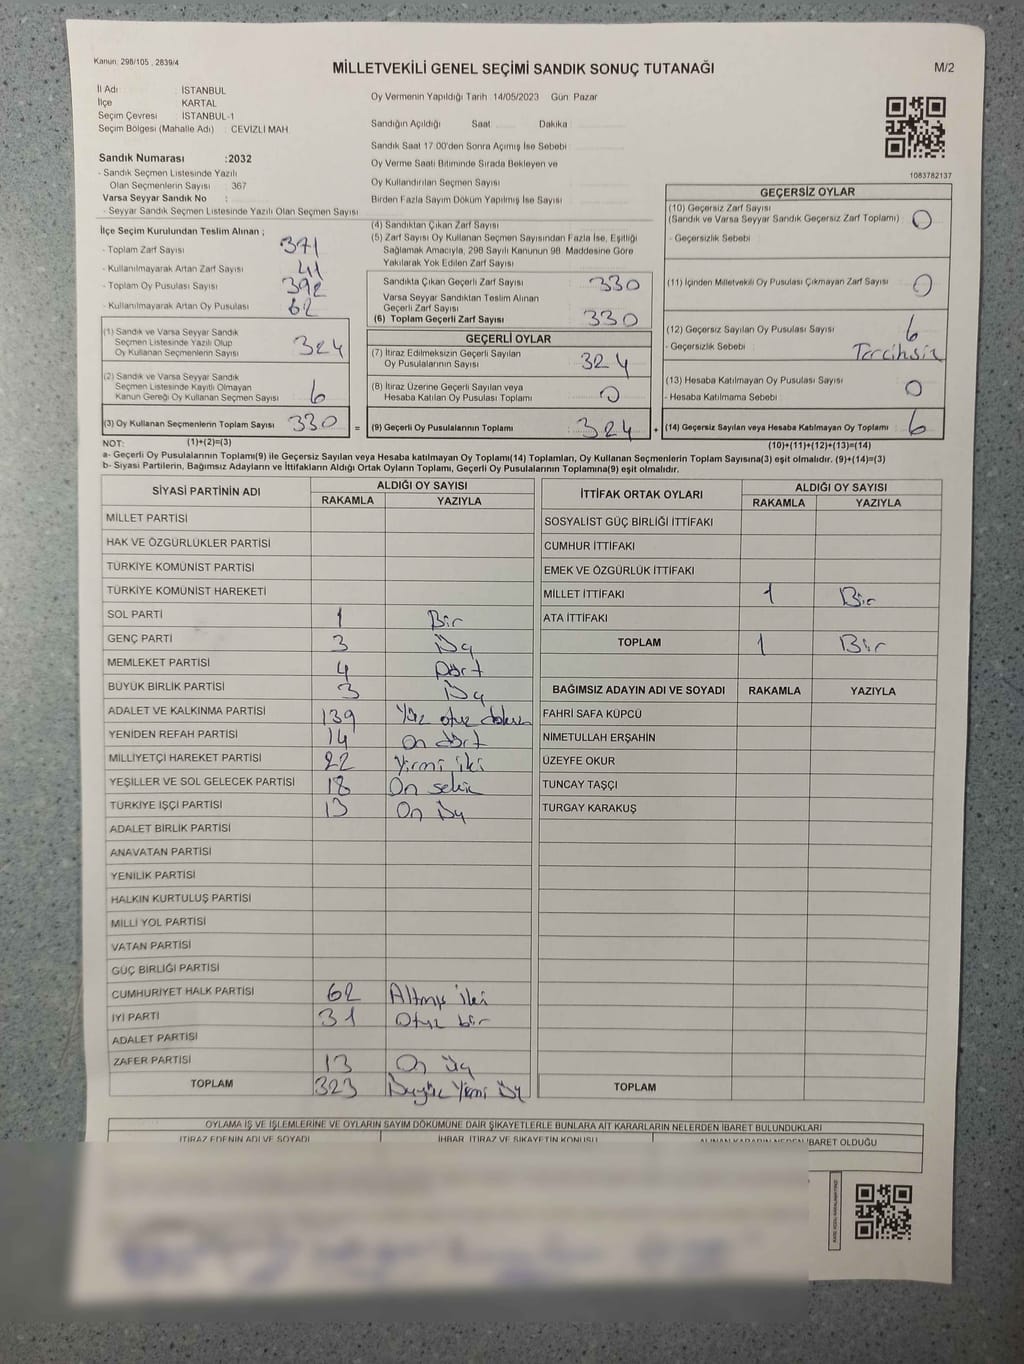 Kanun: 298/105 , 2839/4
MİLLETVEKİLİ GENEL SEÇİMİ SANDIK SONUÇ TUTANAĞI
M/2
İl Adı : İSTANBUL
İlçe : KARTAL
Seçim Çevresi : İSTANBUL-1
Seçim Bölgesi (Mahalle Adı) : CEVİZLİ MAH.
Sandık Numarası :2032
- Sandık Seçmen Listesinde Yazılı
Olan Seçmenlerin Sayısı : 367
Varsa Seyyar Sandık No :
- Seyyar Sandık Seçmen Listesinde Yazılı Olan Seçmen Sayısı
İlçe Seçim Kurulundan Teslim Alınan ;
- Toplam Zarf Sayısı 371
- Kullanılmayarak Artan Zarf Sayısı 41
- Toplam Oy Pusulası Sayısı 392
- Kullanılmayarak Artan Oy Pusulası 62
(1) Sandık ve Varsa Seyyar Sandık
Seçmen Listesinde Yazılı Olup
Oy Kullanan Seçmenlerin Sayısı 324
(2) Sandık ve Varsa Seyyar Sandık
Seçmen Listesinde Kayıtlı Olmayan
Kanun Gereği Oy Kullanan Seçmen Sayısı 6
(3) Oy Kullanan Seçmenlerin Toplam Sayısı 330 =
Oy Vermenin Yapıldığı Tarih 14/05/2023 Gün: Pazar
Sandığın Açıldığı Saat Dakika :
Sandık Saat 17:00'den Sonra Açılmış İse Sebebi :
Oy Verme Saati Bitiminde Sırada Bekleyen ve
Oy Kullandırılan Seçmen Sayısı
Birden Fazla Sayım Döküm Yapılmış İse Sayısı :
(4) Sandıktan Çıkan Zarf Sayısı
(5) Zarf Sayısı Oy Kullanan Seçmen Sayısından Fazla İse, Eşitliği
Sağlamak Amacıyla, 298 Sayılı Kanunun 98. Maddesine Göre
Yakılarak Yok Edilen Zarf Sayısı
Sandıkta Çıkan Geçerli Zarf Sayısı : 330
Varsa Seyyar Sandıktan Teslim Alınan
Geçerli Zarf Sayısı
(6) Toplam Geçerli Zarf Sayısı : 330
GEÇERLİ OYLAR
(7) İtiraz Edilmeksizin Geçerli Sayılan
Oy Pusulalarının Sayısı : 324
(8) İtiraz Üzerine Geçerli Sayılan veya
Hesaba Katılan Oy Pusulası Toplamı : 0
(9) Geçerli Oy Pusulalarının Toplamı : 324 +
1083782137
GEÇERSİZ OYLAR
(10) Geçersiz Zarf Sayısı
(Sandık ve Varsa Seyyar Sandık Geçersiz Zarf Toplamı) : 0
- Geçersizlik Sebebi :
(11) İçinden Milletvekili Oy Pusulası Çıkmayan Zarf Sayısı : 0
(12) Geçersiz Sayılan Oy Pusulası Sayısı : 6
- Geçersizlik Sebebi : Tercihsiz
(13) Hesaba Katılmayan Oy Pusulası Sayısı : 0
- Hesaba Katılmama Sebebi :
(14) Geçersiz Sayılan veya Hesaba Katılmayan Oy Toplamı : 6
NOT: (1)+(2)=(3) (10)+(11)+(12)+(13)=(14)
a- Geçerli Oy Pusulalarının Toplamı(9) ile Geçersiz Sayılan veya Hesaba katılmayan Oy Toplamı(14) Toplamları, Oy Kullanan Seçmenlerin Toplam Sayısına(3) eşit olmalıdır. (9)+(14)=(3)
b- Siyasi Partilerin, Bağımsız Adayların ve İttifakların Aldığı Ortak Oyların Toplamı, Geçerli Oy Pusulalarının Toplamına(9) eşit olmalıdır.
SİYASİ PARTİNİN ADI ALDIĞI OY SAYISI
RAKAMLA YAZIYLA
MİLLET PARTİSİ
HAK VE ÖZGÜRLÜKLER PARTİSİ
TÜRKİYE KOMÜNİST PARTİSİ
TÜRKİYE KOMÜNİST HAREKETİ
SOL PARTİ 1 Bir
GENÇ PARTİ 3 Üç
MEMLEKET PARTİSİ 4 Dört
BÜYÜK BİRLİK PARTİSİ 3 Üç
ADALET VE KALKINMA PARTİSİ 139 Yüz otuz dokuz
YENİDEN REFAH PARTİSİ 14 On dört
MİLLİYETÇİ HAREKET PARTİSİ 22 Yirmi iki
YEŞİLLER VE SOL GELECEK PARTİSİ 18 On sekiz
TÜRKİYE İŞÇİ PARTİSİ 13 On Üç
ADALET BİRLİK PARTİSİ
ANAVATAN PARTİSİ
YENİLİK PARTİSİ
HALKIN KURTULUŞ PARTİSİ
MİLLİ YOL PARTİSİ
VATAN PARTİSİ
GÜÇ BİRLİĞİ PARTİSİ
CUMHURİYET HALK PARTİSİ 62 Altmış iki
İYİ PARTİ 31 Otuz bir
ADALET PARTİSİ
ZAFER PARTİSİ 13 On üç
TOPLAM 323 Üçyüz Yirmi Üç
İTTİFAK ORTAK OYLARI ALDIĞI OY SAYISI
RAKAMLA YAZIYLA
SOSYALİST GÜÇ BİRLİĞİ İTTİFAKI
CUMHUR İTTİFAKI
EMEK VE ÖZGÜRLÜK İTTİFAKI
MİLLET İTTİFAKI 1 Bir
ATA İTTİFAKI
TOPLAM 1 Bir
BAĞIMSIZ ADAYIN ADI VE SOYADI RAKAMLA YAZIYLA
FAHRİ SAFA KÜPCÜ
NİMETULLAH ERŞAHİN
ÜZEYFE OKUR
TUNCAY TAŞÇI
TURGAY KARAKUŞ
TOPLAM
OYLAMA İŞ VE İŞLEMLERİNE VE OYLARIN SAYIM DÖKÜMÜNE DAİR ŞİKAYETLERLE BUNLARA AİT KARARLARIN NELERDEN İBARET BULUNDUKLARI
İTİRAZ EDENİN ADI VE SOYADI İHBAR, İTİRAZ VE ŞİKAYETİN KONUSU ALINAN KARARIN NEDEN İBARET OLDUĞU